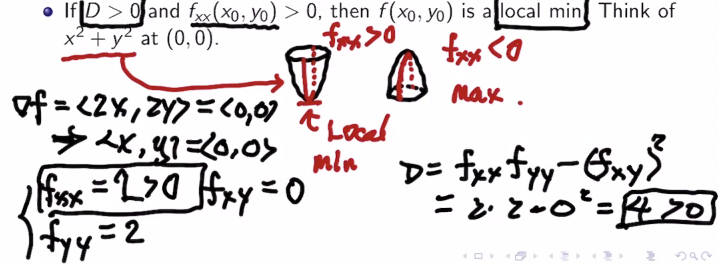 • If D > 0 and fxx(x0, y0) > 0, then f(x0, y0) is a local min. Think of
x² + y² at (0, 0).
fxx>0
fxx<0
max.
↑ Local
min
∇f = <2x, 2y> = <0,0>
⇒ <x, y> = <0,0>
fxx = 2>0 fxy = 0
fyy = 2
D = fxx fyy − (fxy)²
= 2·2−0² = 4 >0